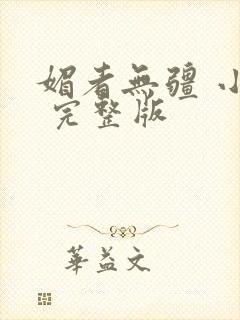 媚者無疆 小
完整版
華益文